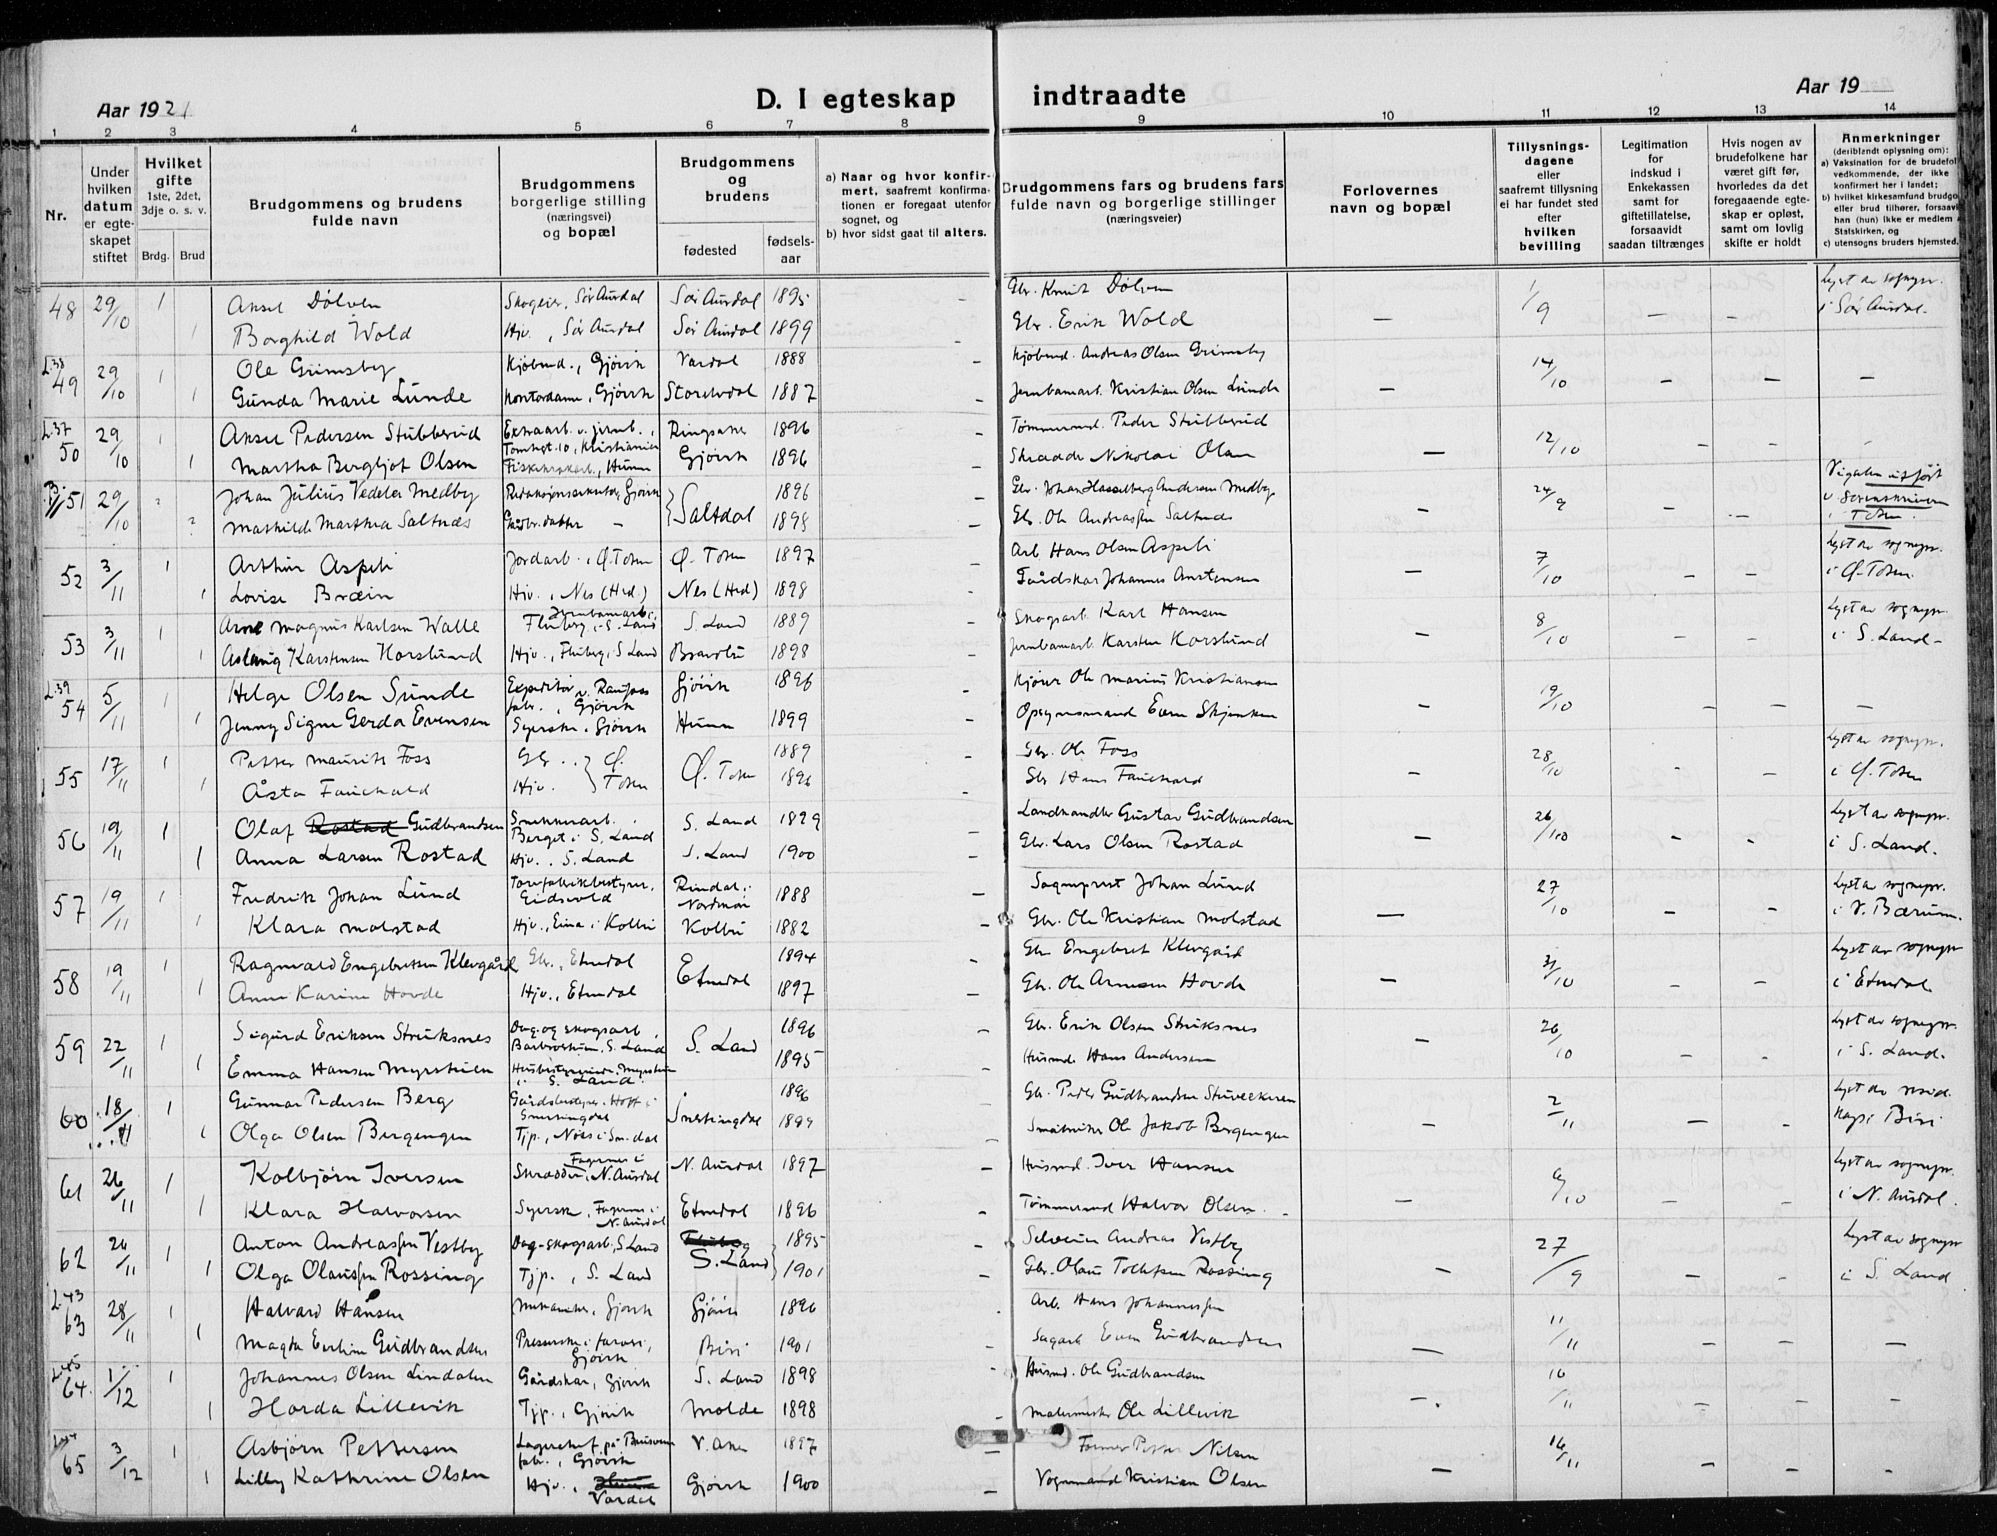 Aar 1921
D. I egteskap indtraadte
Aar 19
1 2 3 4 5 6 7 8 9 10 11 12 13 14
Nr.
Under hvilken datum er egteskapet stiftet
Hvilket gifte 1ste, 2det, 3dje o. s. v.
Brdg. Brud
Brudgommens og brudens fulde navn
Brudgommens borgerlige stilling (næringsvei) og bopæl
Brudgommens og brudens
fødested fødselsaar
a) Naar og hvor konfirmert, saafremt konfirmationen er foregaat utenfor sognet, og
b) hvor sidst gaat til alters.
Brudgommens fars og brudens fars fulde navn og borgerlige stillinger (næringsveier)
Forlovernes navn og bopæl
Tillysningsdagene eller saafremt tillysning ei har fundet sted efter hvilken bevilling
Legitimation for indskud i Enkekassen samt for giftetillatelse, forsaavidt saadan tiltrænges
Hvis nogen av brudefolkene har været gift før, hvorledes da det foregaaende egteskap er opløst, samt om lovlig skifte er holdt
Anmerkninger (deriblandt oplysning om):
48 29/10 1 Aksel Dölven Skogeier, Sör Aurdal Sör Aurdal 1895 Gbr. Knut Dölven 1/9 Lyst av sognepr.
1 Borghild Wold Hjv., Sör Aurdal Sör Aurdal 1899 Gbr. Erik Wold i Sör Aurdal.
L.38 49 29/10 1 Ole Grimsby Kjöbmd., Gjövik Vardal 1888 Kjöbmd. Andreas Olsen Grimsby 14/10
1 Gunda Marie Lunde Kontordame, Gjövik Storelvdal 1887 Jernbanearb. Kristian Olsen Lunde
L.37 50 29/10 1 Aksel Pedersen Stubberud Extraarb. v. jernb., Tomtegt. 10, Kristiania Ringsaker 1896 Tömmermd. Peder Stubberud 12/10
1 Martha Bergljot Olsen Gjövik 1896 Skrædder Nikolai Olsen
51 29/10 Johan Julius Vedeler Medby Redaksjonssekretær, Gjövik Saltdal 1896 Gbr. Johan Hasselberg Andersen Medby 24/9 Vigselen utfört
Mathilde Martha Saltnes Gaardbr.datter 1898 Gbr. Ole Andreassen Saltnes v. Sorenskriveren i Toten.
52 3/11 1 Arthur Aspeli Jordarb., Ø. Toten Ø. Toten 1897 Arb. Hans Olsen Aspeli 7/10 Lyst av sognepr.
1 Lovise Bræin Hjv., Nes (Hed.) Nes (Hed) 1898 Gårdskar Johannes Amstensen i Ø. Toten.
53 3/11 1 Arne Magnus Karlsen Walle Jernbanearb., Fluberg i S. Land S. Land 1889 Skogsarb. Karl Hansen 8/10 Lyst av sognepr.
1 Aslaug Karstensen Korslund Hjv., Fluberg i S. Land 1898 Jernbanearb. Karsten Korslund i S. Land
L.39 54 5/11 1 Helge Olsen Sunde Expeditör v. Raufoss fabr., Gjövik Gjövik 1896 Kjörer Ole Marius Kristiansen 19/10
1 Jenny Signe Gerda Evensen Syerske, Gjövik Hunn 1899 Opsynsmand Even Skjenken
55 17/11 1 Petter Maurits Foss Gbr. Ø. Toten Ø. Toten 1889 Gbr. Ole Foss 28/10 Lyst av sognepr.
1 Åsta Fauchald Hjv. 1896 Gbr. Hans Fauchald i Ø. Toten
56 19/11 1 Olaf Rostad Gudbrandsen Snekkerarb., Berget i S. Land S. Land 1899 Landhandler Gustav Gudbrandsen 26/10 Lyst av sognepr.
1 Anna Larsen Rostad Hjv., S. Land S. Land 1900 Gbr. Lars Olsen Rostad i S. Land.
57 19/11 1 Fredrik Johan Lund Torvfabrikbestyrer, Eidsvold Rindal i Nordmör 1888 Sogneprest Johan Lund 27/10 Lyst av sognepr.
1 Klara Molstad Hjv., Eina i Kolbu Kolbu 1882 Gbr. Ole Kristian Molstad i V. Bærum.
58 19/11 1 Ragnvald Engebretsen Klevgård Gbr., Etnedal Etnedal 1894 Gbr. Engebret Klevgård 31/10 Lyst av sognepr.
1 Anne Karine Hovde Hjv., Etnedal 1897 Gbr. Ole Arnesen Hovde i Etnedal
59 22/11 1 Sigurd Eriksen Struksnes Dag- og skogsarb., S. Land S. Land 1896 Gbr. Erik Olsen Struksnes 26/10 Lyst av sognepr.
1 Emma Hansen Myrstuen Husbestyrerinde, Myrstuen i S. Land 1895 Husmd. Hans Andersen i S. Land.
60 18/11 1 Gunnar Pedersen Berg Gårdsbestyrer, Hoff i Snertingdal Snertingdal 1896 Gbr. Peder Gudbrandsen Stuveekeren 2/11 Lyst av resid.
1 Olga Olsen Bergengen Tjp., Nöss i Sn.dal 1899 Småbruker Ole Jakob Bergengen kap. i Biri
61 26/11 1 Kolbjörn Iversen Skrædder, Fagernes i N. Aurdal N. Aurdal 1897 Husmd. Iver Hansen 6/10 Lyst av sognepr.
1 Klara Halvorsen Syersk., Fagernes i N. Aurdal Etnedal 1896 Tömmermd. Halvor Olsen i N. Aurdal.
62 26/11 1 Anton Andreassen Vestby Dag-skogsarb., S. Land S. Land 1895 Selveier Andreas Vestby 27/9 Lyst av sognepr
1 Olga Olaussen Rossing Tjp., S. Land 1901 Gbr. Olaus Tollefsen Rossing i S. Land
L.43 63 28/11 1 Halvard Hansen Mekaniker, Gjövik Gjövik 1896 Arb. Hans Johannessen 11/11
1 Magda Eveline Gudbrandsen Presserske i farveri, Gjövik Biri 1901 Sagarb. Even Gudbrandsen
64 1/12 1 Johannes Olsen Lindalen Gårdskar, Gjövik S. Land 1898 Husmd. Ole Gudbrandsen 10/11
1 Horda Lillevik Tjp., Gjövik Molde 1898 Malermester Ole Lillevik
65 3/12 1 Asbjörn Pettersen Lagerchef på Brusvann fabr., Gjövik V. Aker 1897 Former Petter Nilsen 16/11
1 Lilly Kathrine Olsen Hjv., Vardal Gjövik 1900 Vognmand Kristian Olsen